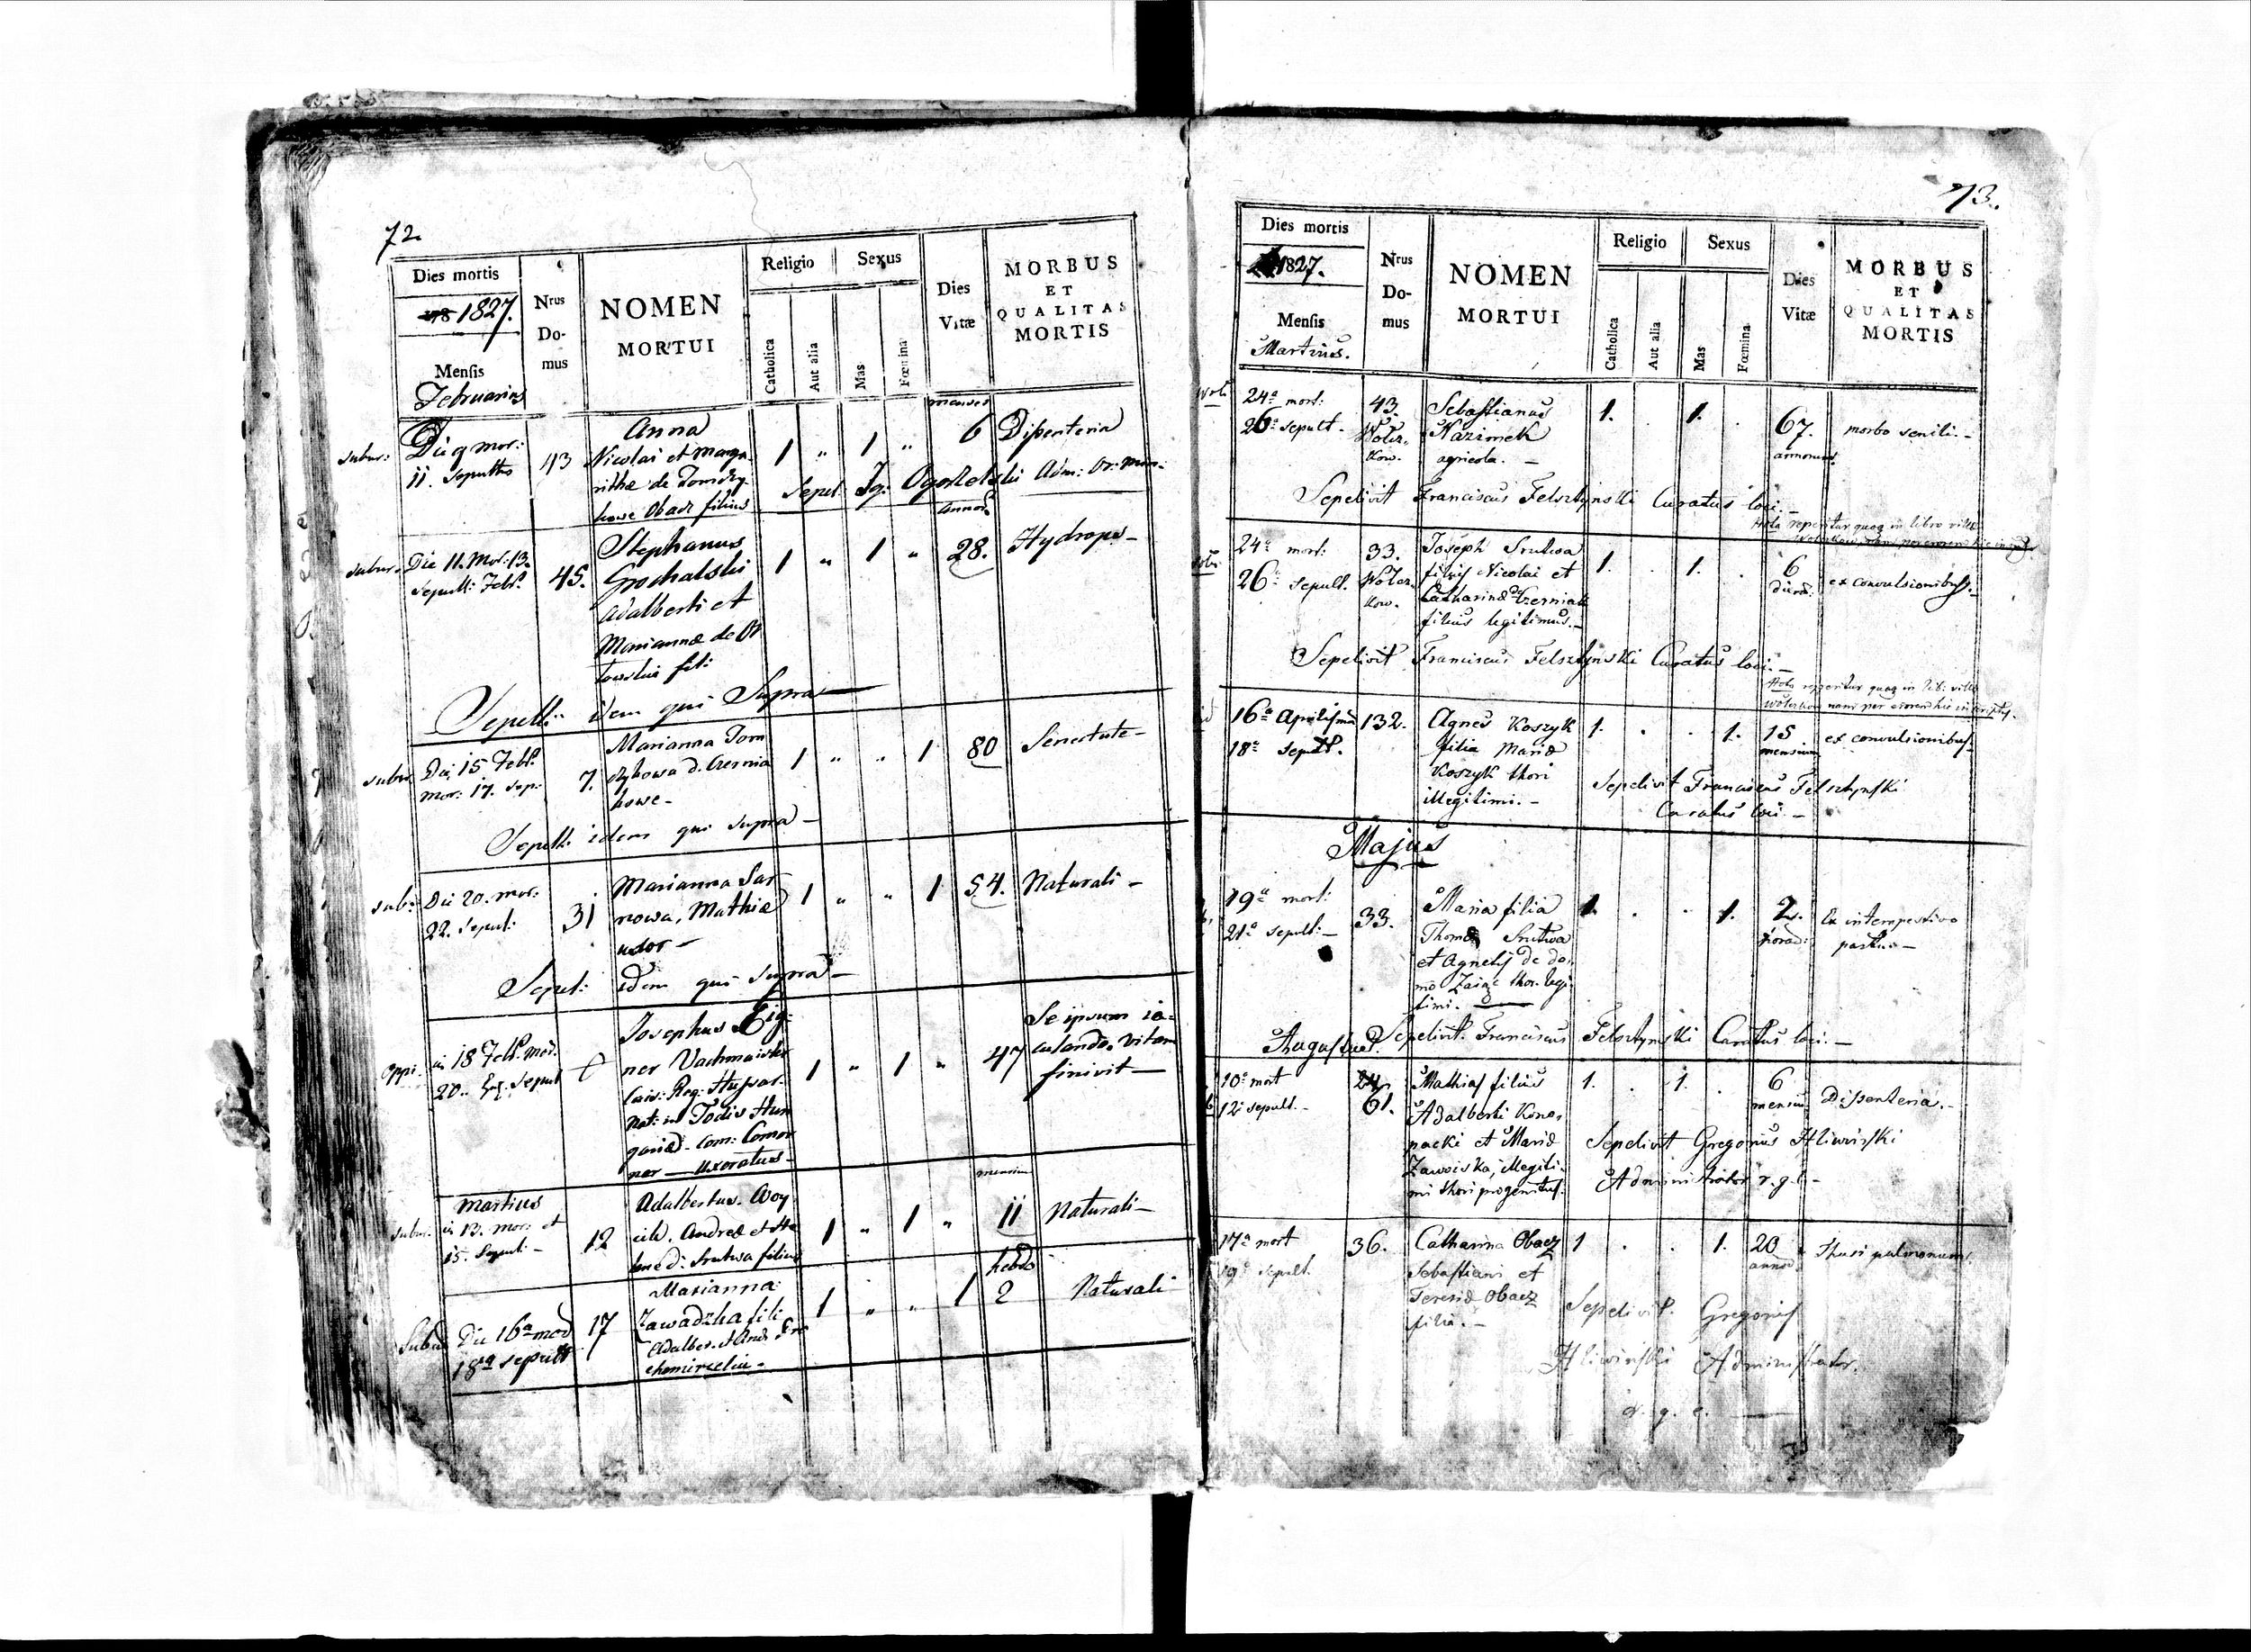 72.
Dies mortis
1827.
Mensis
Februarius
Nrus
Do-
mus
NOMEN
MORTUI
Religio
Sexus
Catholica
Aut alia
Mas
Fœmina
Dies
Vitæ
MORBUS
ET
QUALITAS
MORTIS
subur:
Die 9 mor:
11. Sepultus
43
Anna
Nicolai et Marga
rithæ de Tomczy
kowe Obacz filius
1 " 1 "
menses
6
Disenteria
Sepel: Ig:
Adm:
subur:
Die 11. Mor: 13.
Sepult: Febr.
45.
Stephanus
Grochalski
Adalberti et
Mariannæ de
fili
1 " 1 "
annor
28.
Hydrops -
Sepelli: idem qui Supra
subur
Die 15 Febr.
mor: 17. Sep:
7.
Marianna Tom
czykowa d. Czernia
kowe -
1 " " 1
80
Senectute -
Sepelli: idem qui supra -
sub:
Die 20. mor:
22. Sepult:
31
Marianna Sar
nowa, Mathiæ
uxor -
1 " " 1
54.
Naturali -
Sepel: idem qui supra -
oppi:
18 Febr. mor.
20. Sepul
Josephus
ner Vachmaister
Reg: Hussar.
Nat: in Todis Hun
gariæ Com: Comor
ner - Uxoratus -
1 " 1 "
47
Se ipsum ia-
culando vitam
finivit -
subur.
Martius
13. Mor: et
15. Sepul: -
12
Adalbertus Woy
cik. Andreæ et He
lenæ d: Srutwa filius
1 " 1 "
mensium
11
Naturali -
Subur
Die 16a mor
18a sepult
17
Marianna
Zawadzka fili
1 " " 1
hebdo
2
Naturali
73.
Dies mortis
1827.
Mensis
Martius.
Nrus
Do-
mus
NOMEN
MORTUI
Religio
Sexus
Catholica
Aut alia
Mas
Fœmina
Dies
Vitæ
MORBUS
ET
QUALITAS
MORTIS
24a mort:
26a sepult -
43.
Wolcz.
kow.
Sebastianus
Kazimek
agricola. -
1. . 1. .
67.
annorum
morbo senili. -
Sepelivit Franciscus Felsztynski Curatus loci. -
Nota reperitur quoq in libro villæ
24a mort:
26a sepult.
33.
Wolcz.
kow.
Joseph Srutwa
filius Nicolai et
Catharinæ Czerniak
filius legitimus. -
1. . 1. .
6
dierū
ex convulsionibus. -
Sepelivit Franciscus Felsztynski Curatus loci. -
Nota reperitur quoq in lib: villæ
16a Aprilis
18a sepult.
132.
Agnes Koszyk
filia Mariæ
Koszyk thori
illegitimi. -
1. . . 1.
15
mensium
ex convulsionibus
Sepelivit Franciscus Felsztynski
Curatus loci. -
Majus
19a mort:
21a sepult: -
33.
Maria filia
Thomæ Srutwa
et Agnetis de do-
mo Zaiąc thor. legi-
timi.
1. . . 1.
2.
horar:
Ex intempestivo
partus -
Augustus
Sepelivit. Franciscus Felsztynski Curatus loci. -
10a mort
12a sepult. -
61.
Mathias filius
Adalberti Kono-
packi et Mariæ
Zawoiska, illegiti-
mi thori progenitus.
1. . 1. .
6
mensiū
Disenteria. -
Sepelivit Gregorius Hliwiński
Administrator r. g. c. -
17a mort
19a sepult.
36.
Catharina Obacz
Sebastiani et
Teresiæ Obacz
filia. -
1 . . 1.
20
annor.
Thusi pulmonum.
Sepelivit. Gregorius
Hliwiński Administrator.
r. g. c.